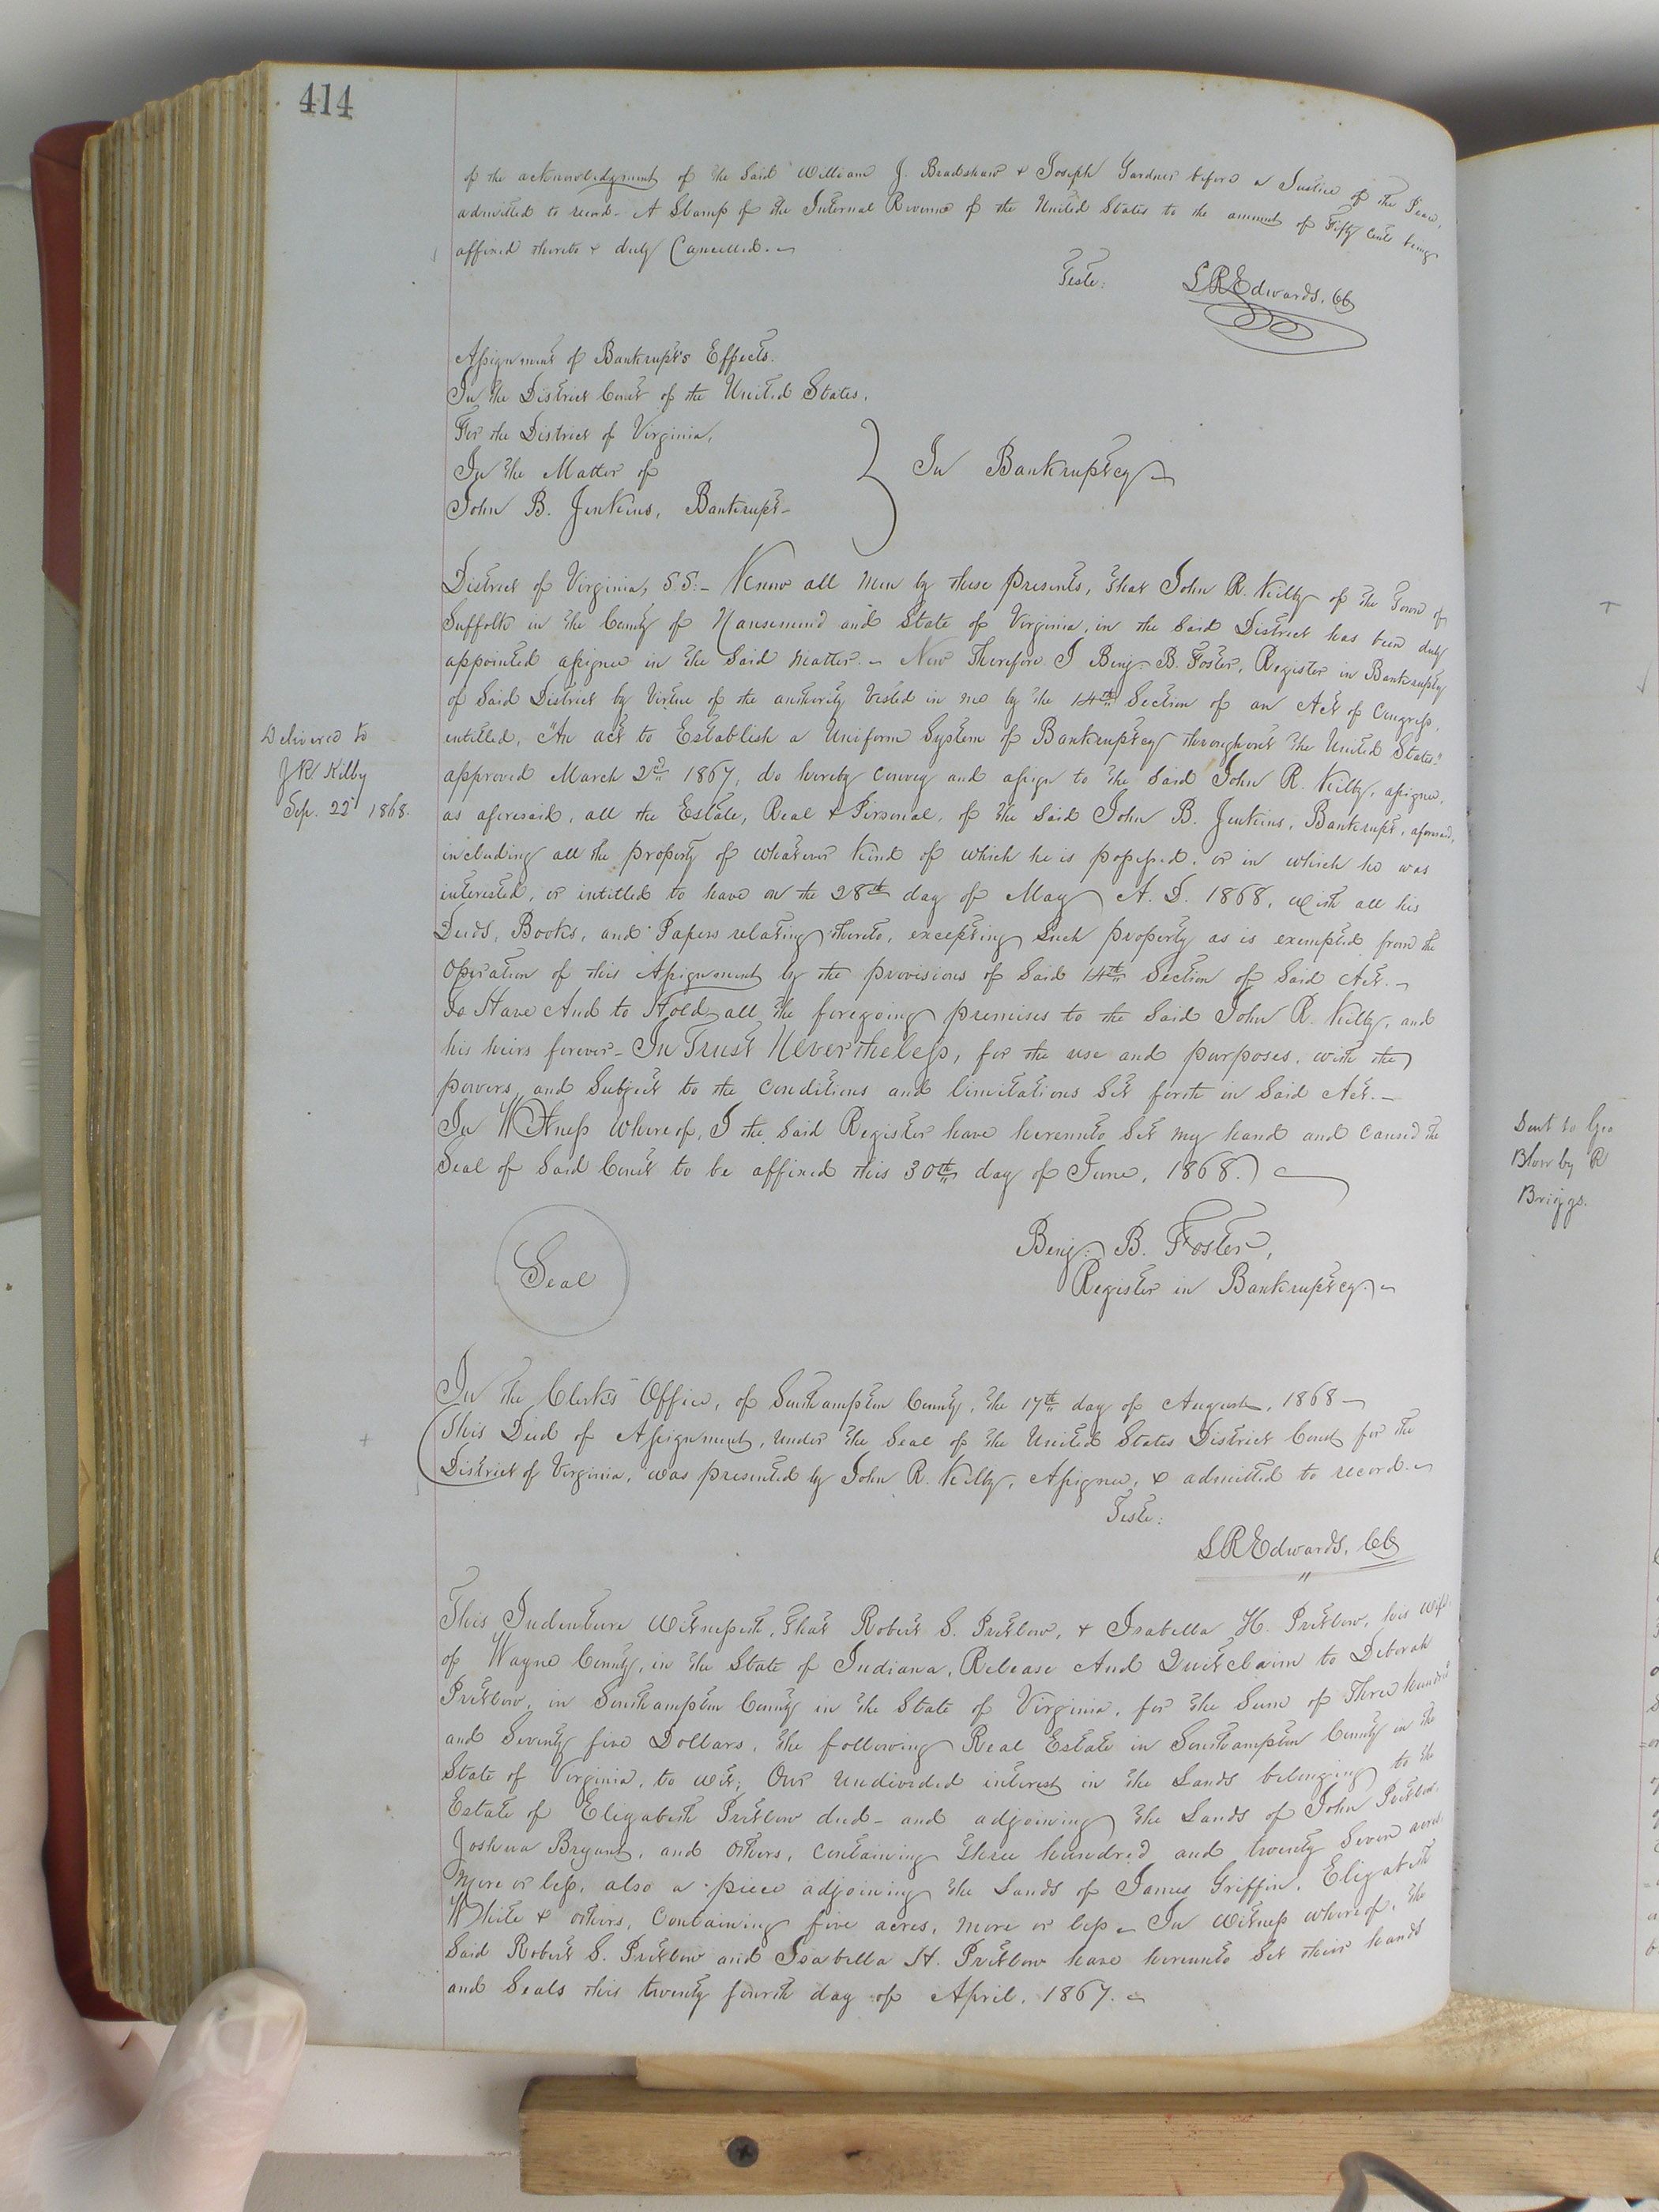 414
of the acknowledgment of the Said William J. Bradshaw & Joseph Gardner before a Justice of the Peace,
admitted to record - A Stamp of the Internal Revenue of the United States to the amount of Fifty Cents being
affixed thereto & duly Cancelled. -
Teste:
L R Edwards, CC
Assignment of Bankrupt's Effects.
In the District Court of the United States,
For the District of Virginia,
In the Matter of
John B. Jenkins, Bankrupt -
In Bankruptcy -
District of Virginia, S.S: - Know all Men by these Presents, that John R. Kilby of the Town of
Suffolk in the County of Nansemond and State of Virginia, in the Said District has been duly
appointed assignee in the Said Matter. - Now Therefore I Benj. B. Foster, Register in Bankruptcy
of Said District by Virtue of the authority Vested in me by the 14th Section of an Act of Congress,
entitled, "An act to Establish a Uniform System of Bankruptcy throughout the United States"
approved March 2d 1867, do hereby Convey and assign to the Said John R. Kilby, assignee,
as aforesaid, all the Estate, Real & Personal, of the Said John B. Jenkins, Bankrupt, aforesaid,
including all the property of whatever Kind of which he is possessed, or in which he was
interested, or intitled to have on the 28th day of May A. D. 1868, with all his
Deeds, Books, and Papers relating thereto, excepting Such property as is exempted from the
Operation of this Assignment by the provisions of Said 14th Section of Said Act. -
To Have And to Hold all the foregoing premises to the Said John R. Kilby, and
his heirs forever - In Trust Nevertheless, for the use and purposes, with the
powers, and Subject to the Conditions and limitations Set forth in Said Act. -
In Witness Whereof, I the Said Register have hereunto Set my hand and Caused the
Seal of Said Court to be affixed this 30th day of June, 1868.
Delivered to
J R Kilby
Sep. 22d 1868.
Seal
Benj. B. Foster,
Register in Bankruptcy. -
In the Clerk's Office, of Southampton County, the 17th day of August, 1868 -
This Deed of Assignment, Under the Seal of the United States District Court for the
District of Virginia, was presented by John R. Kilby, Assignee, & admitted to record. -
Teste:
L R Edwards, CC
This Indenture Witnesseth, That Robert S. Pretlow, & Isabella H. Pretlow, his wife
of Wayne County, in the State of Indiana, Release And Quitclaim to Deborah
Pretlow, in Southampton County in the State of Virginia, for the Sum of Three hundred
and Seventy five Dollars, the following Real Estate in Southampton County in the
State of Virginia, to wit; Our undivided interest in the Lands belonging to the
Estate of Elizabeth Pretlow decd - and adjoining the Lands of John Pretlow,
Joshua Bryant, and others, Containing three hundred and twenty Seven acres
More or less, also a piece adjoining the Lands of James Griffin, Elizabeth
White & others, Containing five acres, more or less - In Witness whereof, the
Said Robert S. Pretlow and Isabella H. Pretlow have hereunto Set their hands
and Seals this twenty fourth day of April, 1867. -
Sent to Geo
Blow by R
Briggs.